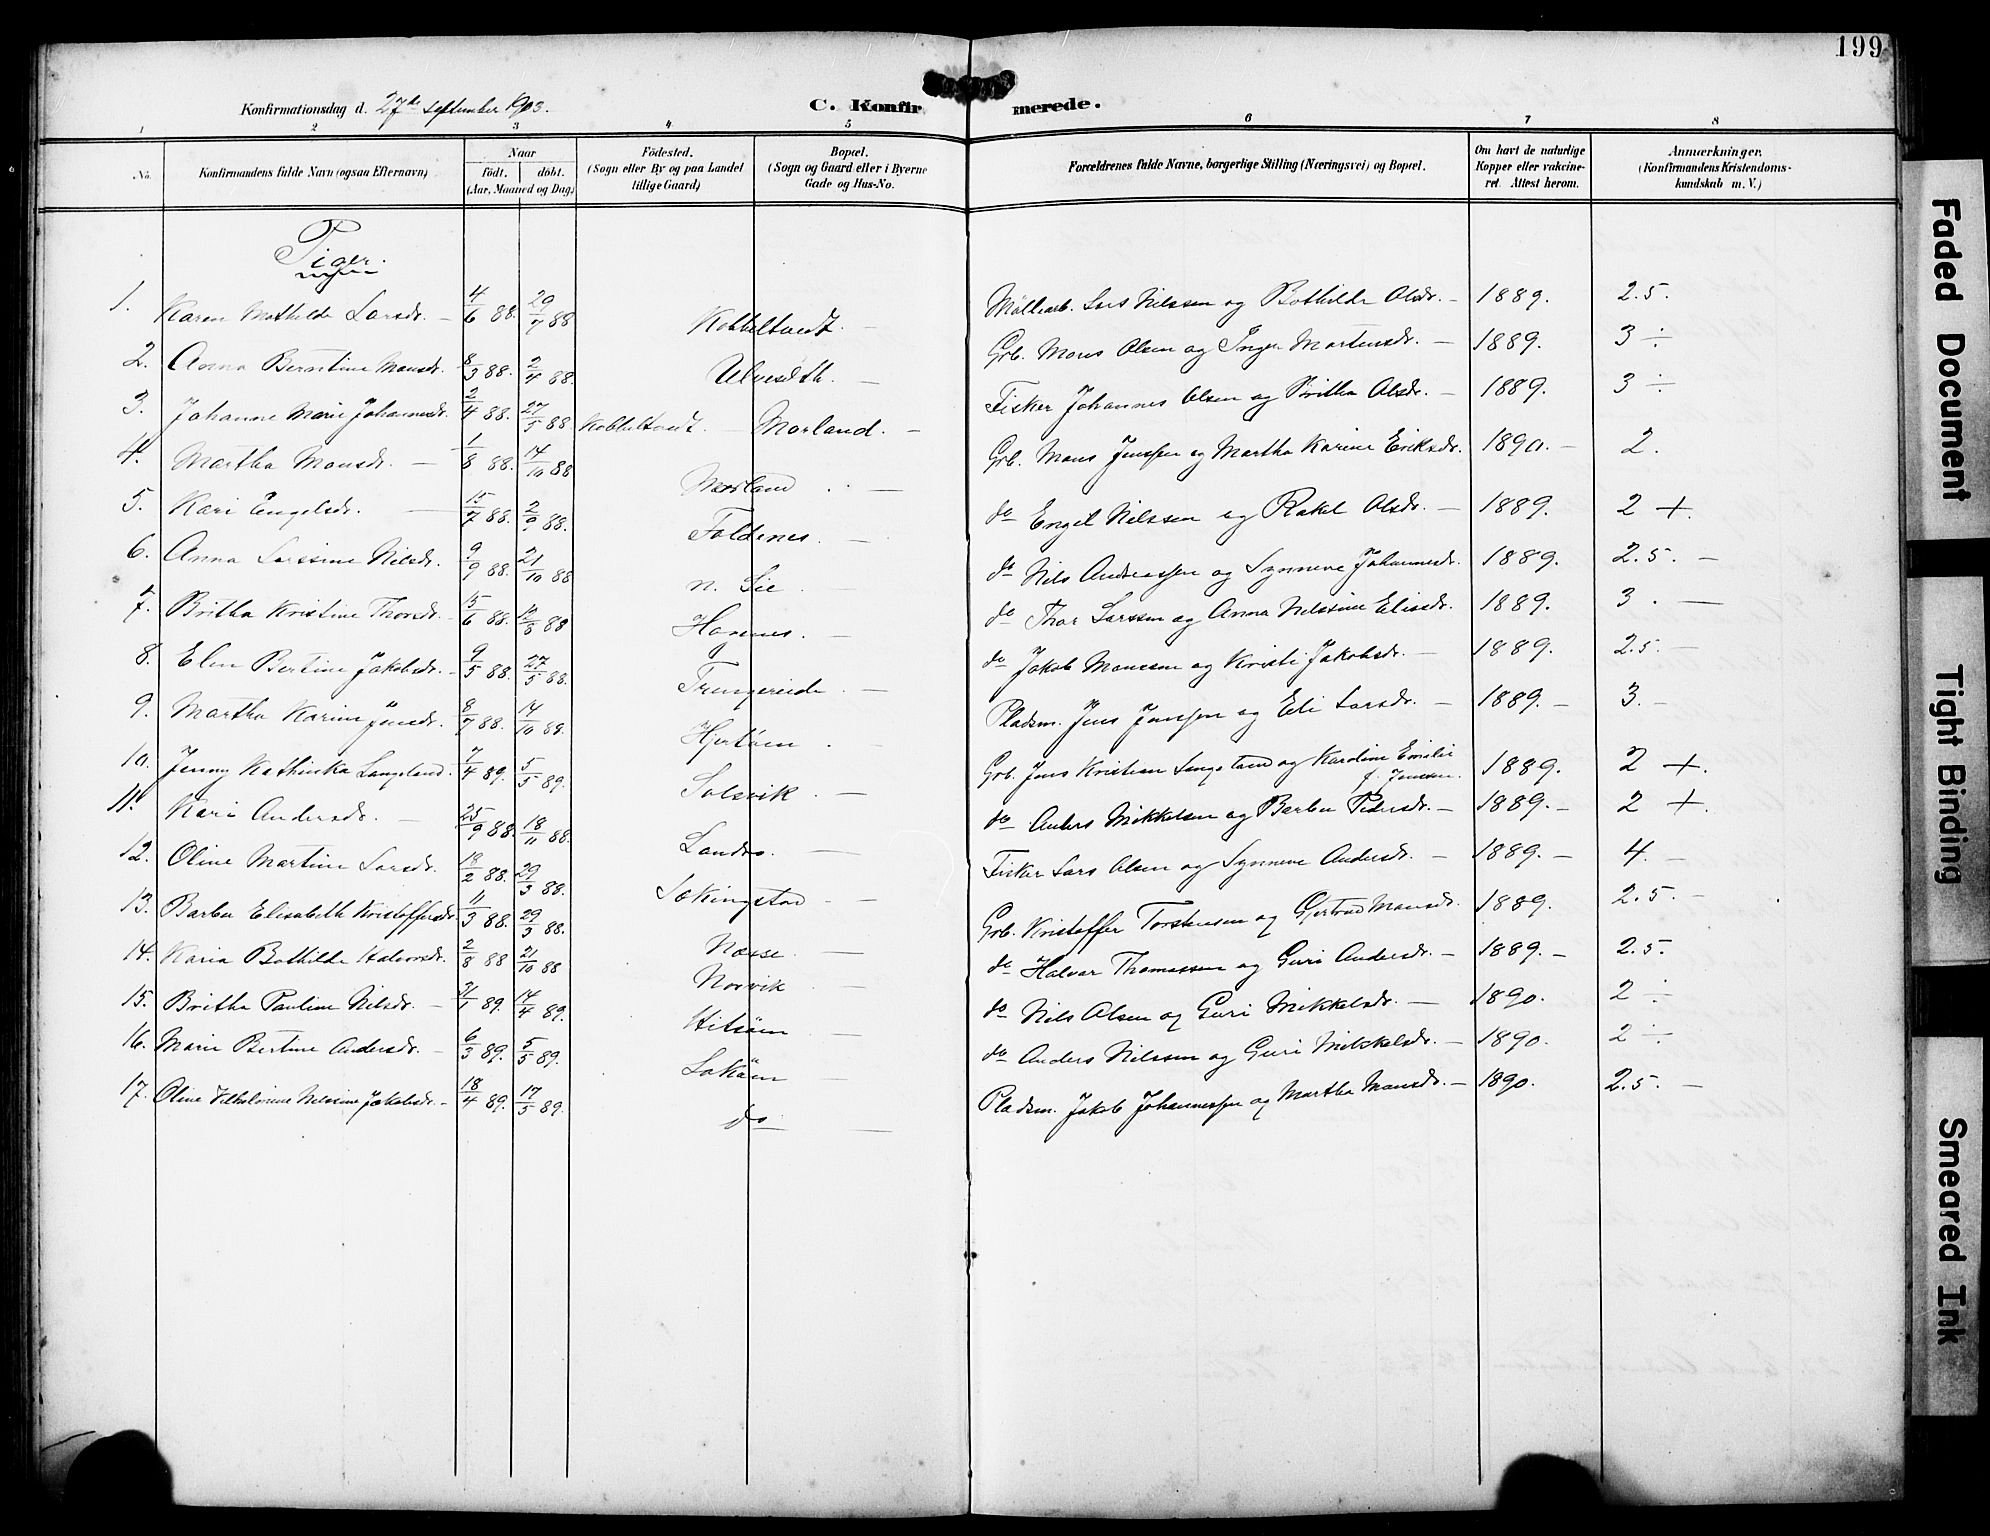 199
Konfirmationsdag d. 27de september 1903.
C. Konfirmerede.
1 2 3 4 5 6 7 8
No. Konfirmandens fulde Navn (ogsaa Efternavn) Naar födt. döbt. (Aar, Maaned og Dag) Födested. (Sogn eller By og paa Landet tillige Gaard) Bopæl. (Sogn og Gaard eller i Byerne Gade og Hus-No. Forældrenes fulde Navne, borgerlige Stilling (Næringsvei) og Bopæl. Om havt de naturlige Kopper eller vakcineret. Attest herom. Anmærkninger. (Konfirmandens Kristendomskundskab m. V.)
Piger.
1. Karen Mathilde Larsdr. – 4/6 88. 29/7 88 Kobbeltvedt. – Möllearb. Lars Nilssen og Bothilde Olsdr. – 1889. 2.5.
2. Anna Berntine Monsdr. 8/3 88. 2/4 88. Ulveseth. – Grb. Mons Olsen og Inger Martensdr. – 1889. 3 ÷
3. Johanne Marie Johannesdr. 2/4 88. 27/5 88 Kobbeltvedt. – Morland. – Fisker Johannes Olsen og Britha Olsdr. – 1889. 3 ÷
4. Martha Monsdr. – 1/8 88. 14/10 88 Morland. – Grb. Mons Jenssen og Martha Karine Eriksdr. 1890. – 2.
5. Kari Engelsdr. – 15/7 88. 2/9 88. Foldenes. – do Engel Nilssen og Rakel Olsdr. – 1889. 2 +.
6. Anna Larssine Nilsdr. 9/9 88. 21/10 88 n. Sie – do Nils Andreassen og Synneve Johannesdr. 1889. 2.5. –
7. Britha Kristine Thorsdr. 15/6 88. 12/8 88 Hagenes. – do Thor Larssen og Anna Nilssine Elisdr. 1889. 3. –
8. Elen Bertine Jakobsdr. – 9/5 88. 27/5 88. Trengereide. – do Jakob Monssen og Kristi Jakobsdr. – 1889. 2.5. –
9. Martha Karine Jensdr. 8/7 88. 14/10 89. Hjertöen. – Pladsm. Jens Jenssen og Eli Larsdr. – 1889. – 3. –
10. Jenny Kathinka Langeland. 7/4 89. 5/5 89. Solsvik. – Grb. Jens Kristian Langeland og Karoline Emilie f. Jenssen. 1889. 2 +.
11. Kari Andersdr. – 25/9 88. 18/11 88. Landro. – do Anders Mikkelsen og Barbu Pedersdr. – 1889. – 2 +
12. Oline Martine Larsdr. 18/2 88. 29/3 88. Lokingstad – Fisker Lars Olsen og Synneve Andersdr. – 1889. – 4. –
13. Barbu Elisabeth Kristoffersdr. 11/3 88. 29/3 88. Naase. – Grb. Kristoffer Torstensen og Gjertrud Monsdr. 1889. 2.5. –
14. Karia Bothilde Halvorsdr. 2/8 88 21/10 88 Norvik – do Halvor Thomassen og Guri Andersdr. – 1889. – 2.5.
15. Britha Pauline Nilsdr. – 31/1 89. 14/4 89. Hitsöen – do Nils Olsen og Guri Mikkelsdr. – 1890. 2 ÷
16. Marie Bertine Andersdr. – 6/3 89. 5/5 89. Loköen do Anders Nilssen og Guri Mikkelsdr. – 1890. 2 ÷
17. Oline Vilhelmine Nilssine Jakobsdr. – 18/4 89. 17/5 89. do – Pladsm. Jakob Johannessen og Martha Monsdr. – 1890. 2.5. –
Faded Document
Tight Binding
Smeared Ink